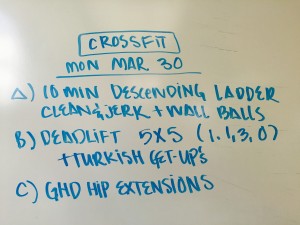 CROSSFIT
MON MAR 30
A) 10 MIN DESCENDING LADDER
CLEAN & JERK + WALL BALLS
B) DEADLIFT 5X5 (1,1,3,0)
+ TURKISH GET-UPS
C) GHD HIP EXTENSIONS